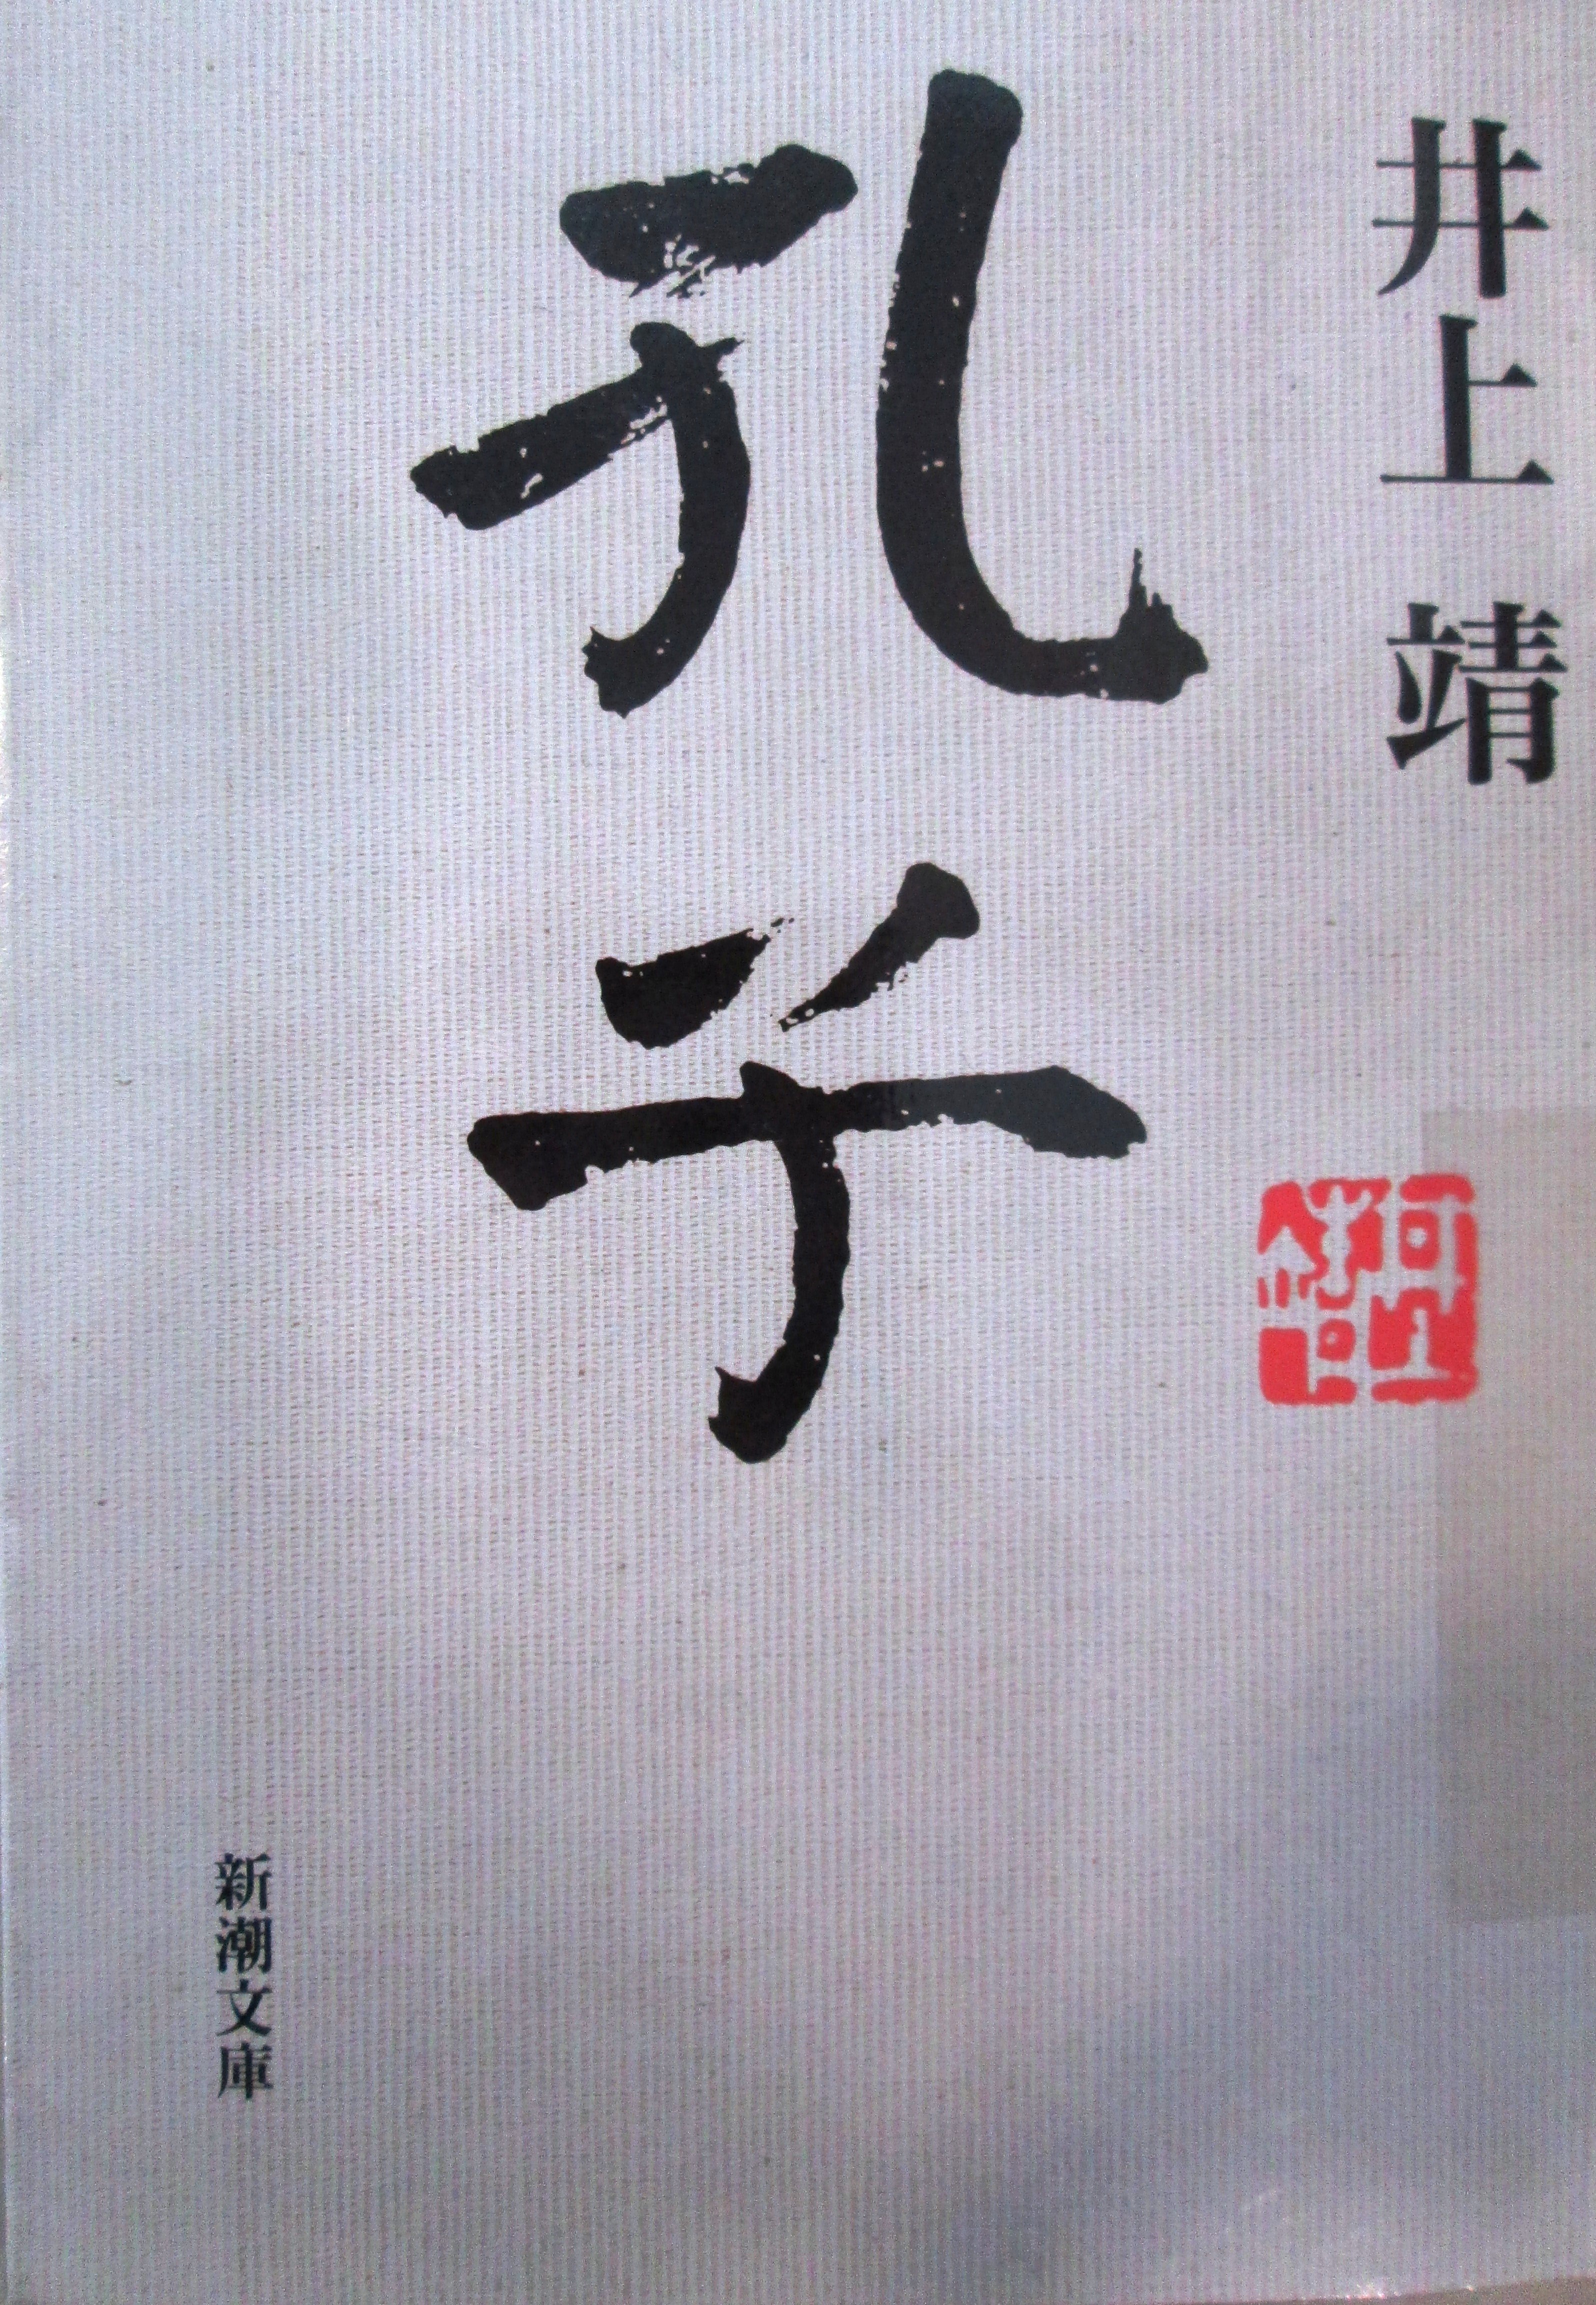 井上 靖
孔子
新潮文庫